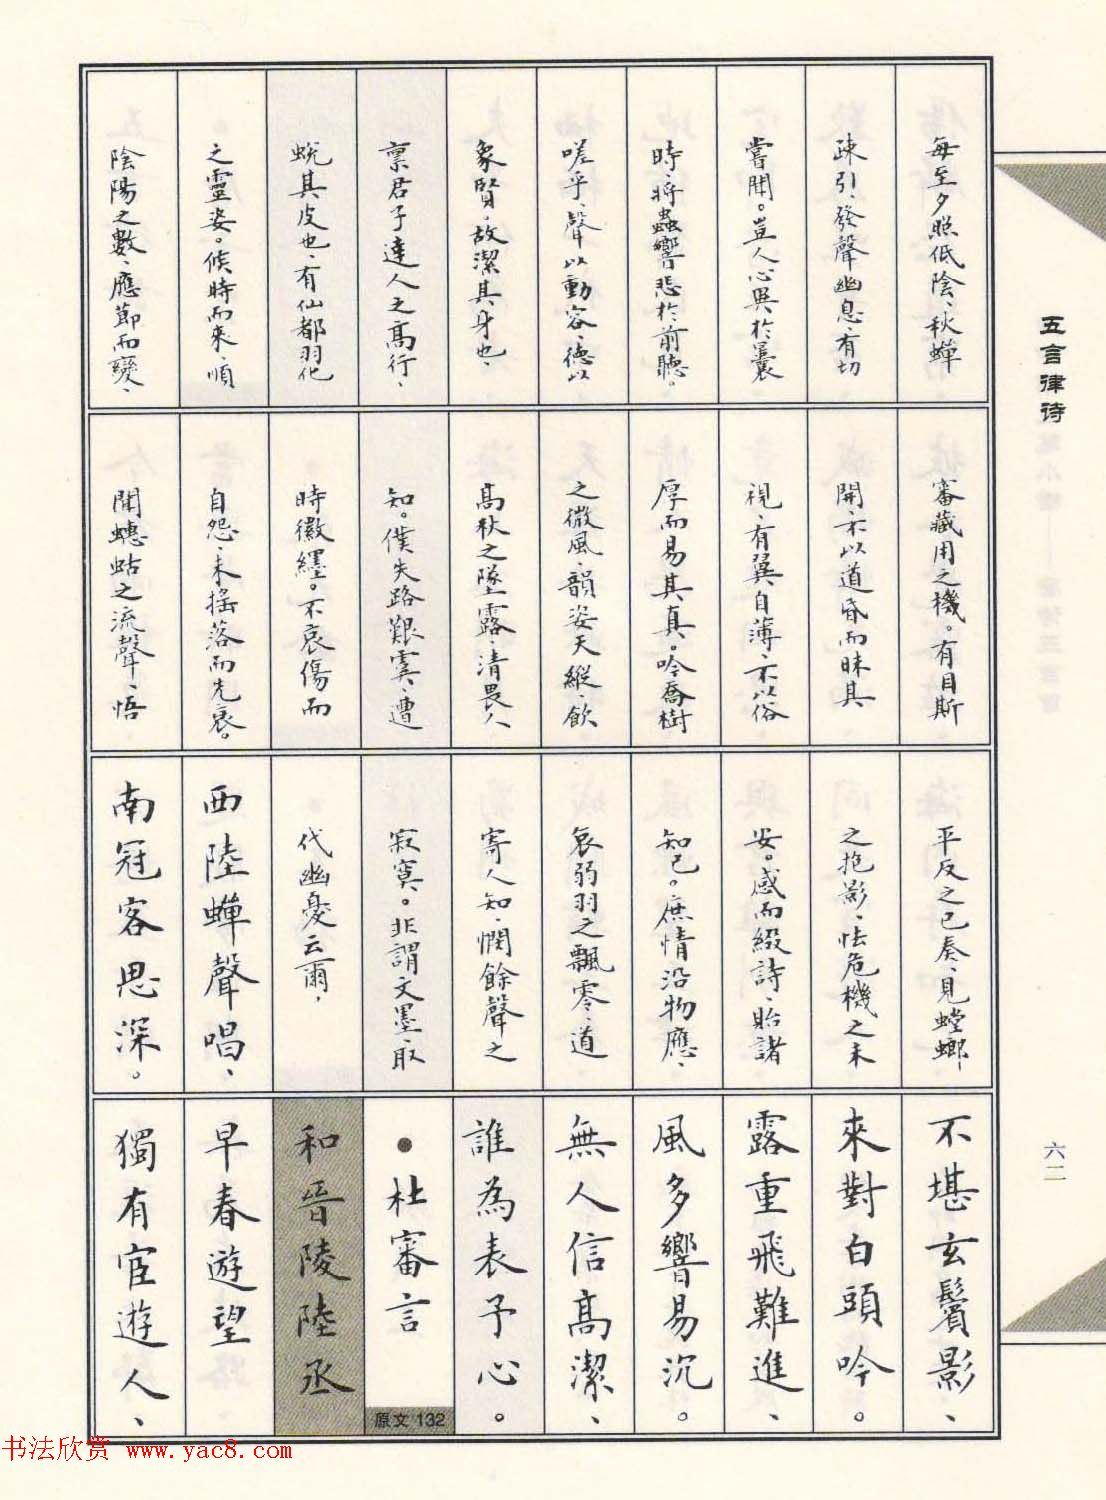 五言律诗
每至夕照低陰、秋蟬
疎引、發聲幽息、有切
嘗聞。豈人心異於曩
時、將蟲響悲於前聽。
嗟乎、聲以動容、德以
象賢。故潔其身也、
禀君子達人之高行、
蛻其皮也、有仙都羽化
之靈姿。候時而來、順
陰陽之數、應節而變、
審藏用之機。有目斯
開、不以道昏而昧其
視、有翼自薄、不以俗
厚而易其真。吟喬樹
之微風、韻姿天縱、飲
高秋之墜露、清畏人
知。僕失路艱虞、遭
時徽纆。不哀傷而
自怨、未搖落而先衰。
聞蟪蛄之流聲、悟
平反之已奏、見螳螂
之抱影、怯危機之未
安。感而綴詩、貽諸
知己。庶情沿物應、
哀弱羽之飄零、道
寄人知、憫餘聲之
寂寞。非謂文墨、取
代幽憂云爾，
西陸蟬聲唱、
南冠客思深。
不堪玄鬢影、
來對白頭吟。
露重飛難進、
風多響易沉。
無人信高潔、
誰為表予心。
●杜審言
原文 132
和晉陵陸丞
早春遊望
獨有宦遊人、
六二
书法欣赏 www.yac8.com